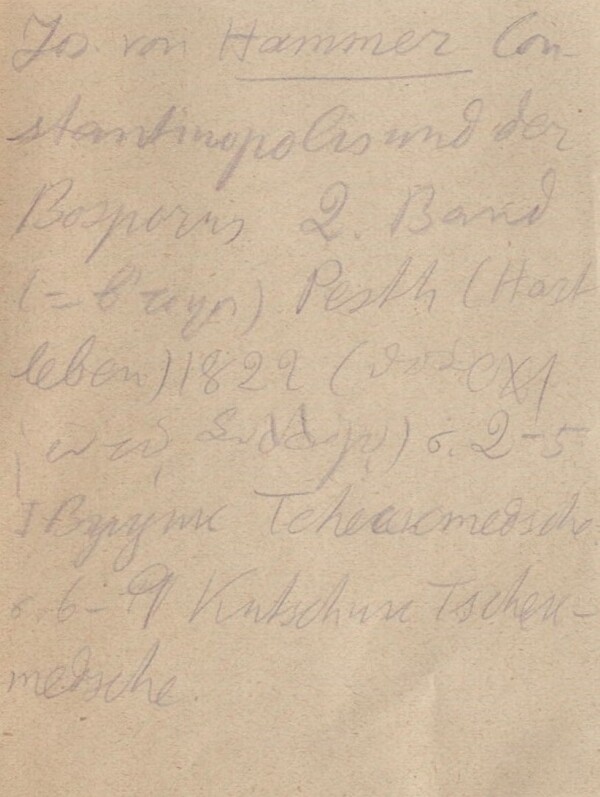 Jos von Hammer Con-
stantinopolis und der
Bosporus 2. Band
(= β' τόμος) Pesth (Hart
leben) 1822
σ. 2–5
Tchekmedsche
σ. 6–9 Kutschuk Tschek-
medsche.